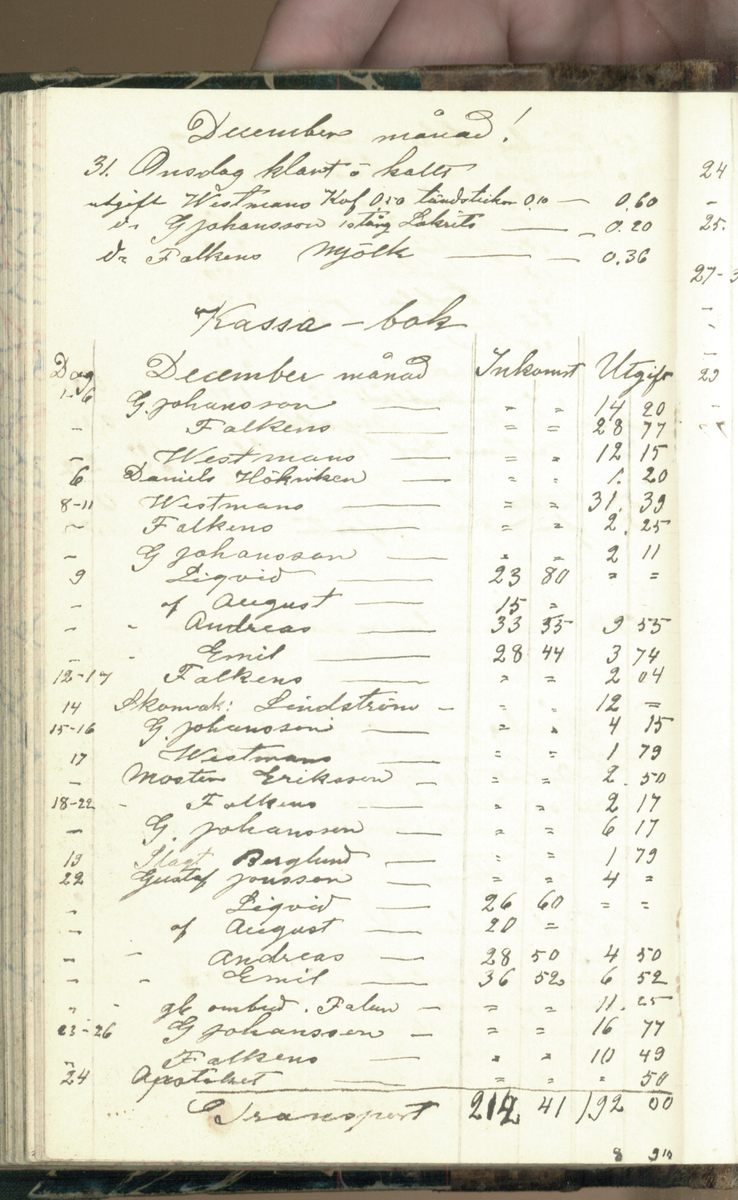 December månad!
31. Onsdag klart o kallt
utgift Westmans Kaf 0,50 tändstickor 0,10 — 0.60
d= G Johansson 1 stång Lakrits — 0.20
d= Falkens Mjölk — — 0.36
Kassa-bok
Dag December månad Inkomst Utgift
1-6 G. Johansson — " " 14 20
- Falkens — = = 28 77
- Westmans — " " 12 15
6 Daniels — " " 1. 20
8-11 Westmans — " = 31. 39
~ Falkens — = = 2. 25
- G Johansson — " " 2 11
9 Liqvid — 23 80 = =
- af August — 15 =
- " Andreas — 33 35 9 55
- " Emil — 28 44 3 74
12-17 Falkens — " = 2 04
14 Skomak: Lindström - " " 12 =
15-16 G. Johansson — " " 4 15
17 Westmans — = = 1 79
- Eriksson - " = 2. 50
18-22 - Falkens — " " 2 17
- G. Johansson — = = 6 17
19 Slagt Berglund — " = 1 79
22 Gustaf Jonsson — 4 =
" Liqvid — 26 60 = =
- af August — 20 =
- " Andreas — 28 50 4 50
- " Emil — 36 52 6 52
" " ombud. Falun - " " 11. 25
23-26 G Johansson - = = 16 77
" Falkens — " " 10 49
24 Apotäket — = = " 50
Transport 212 41 192 00
24
25.
27-3
29